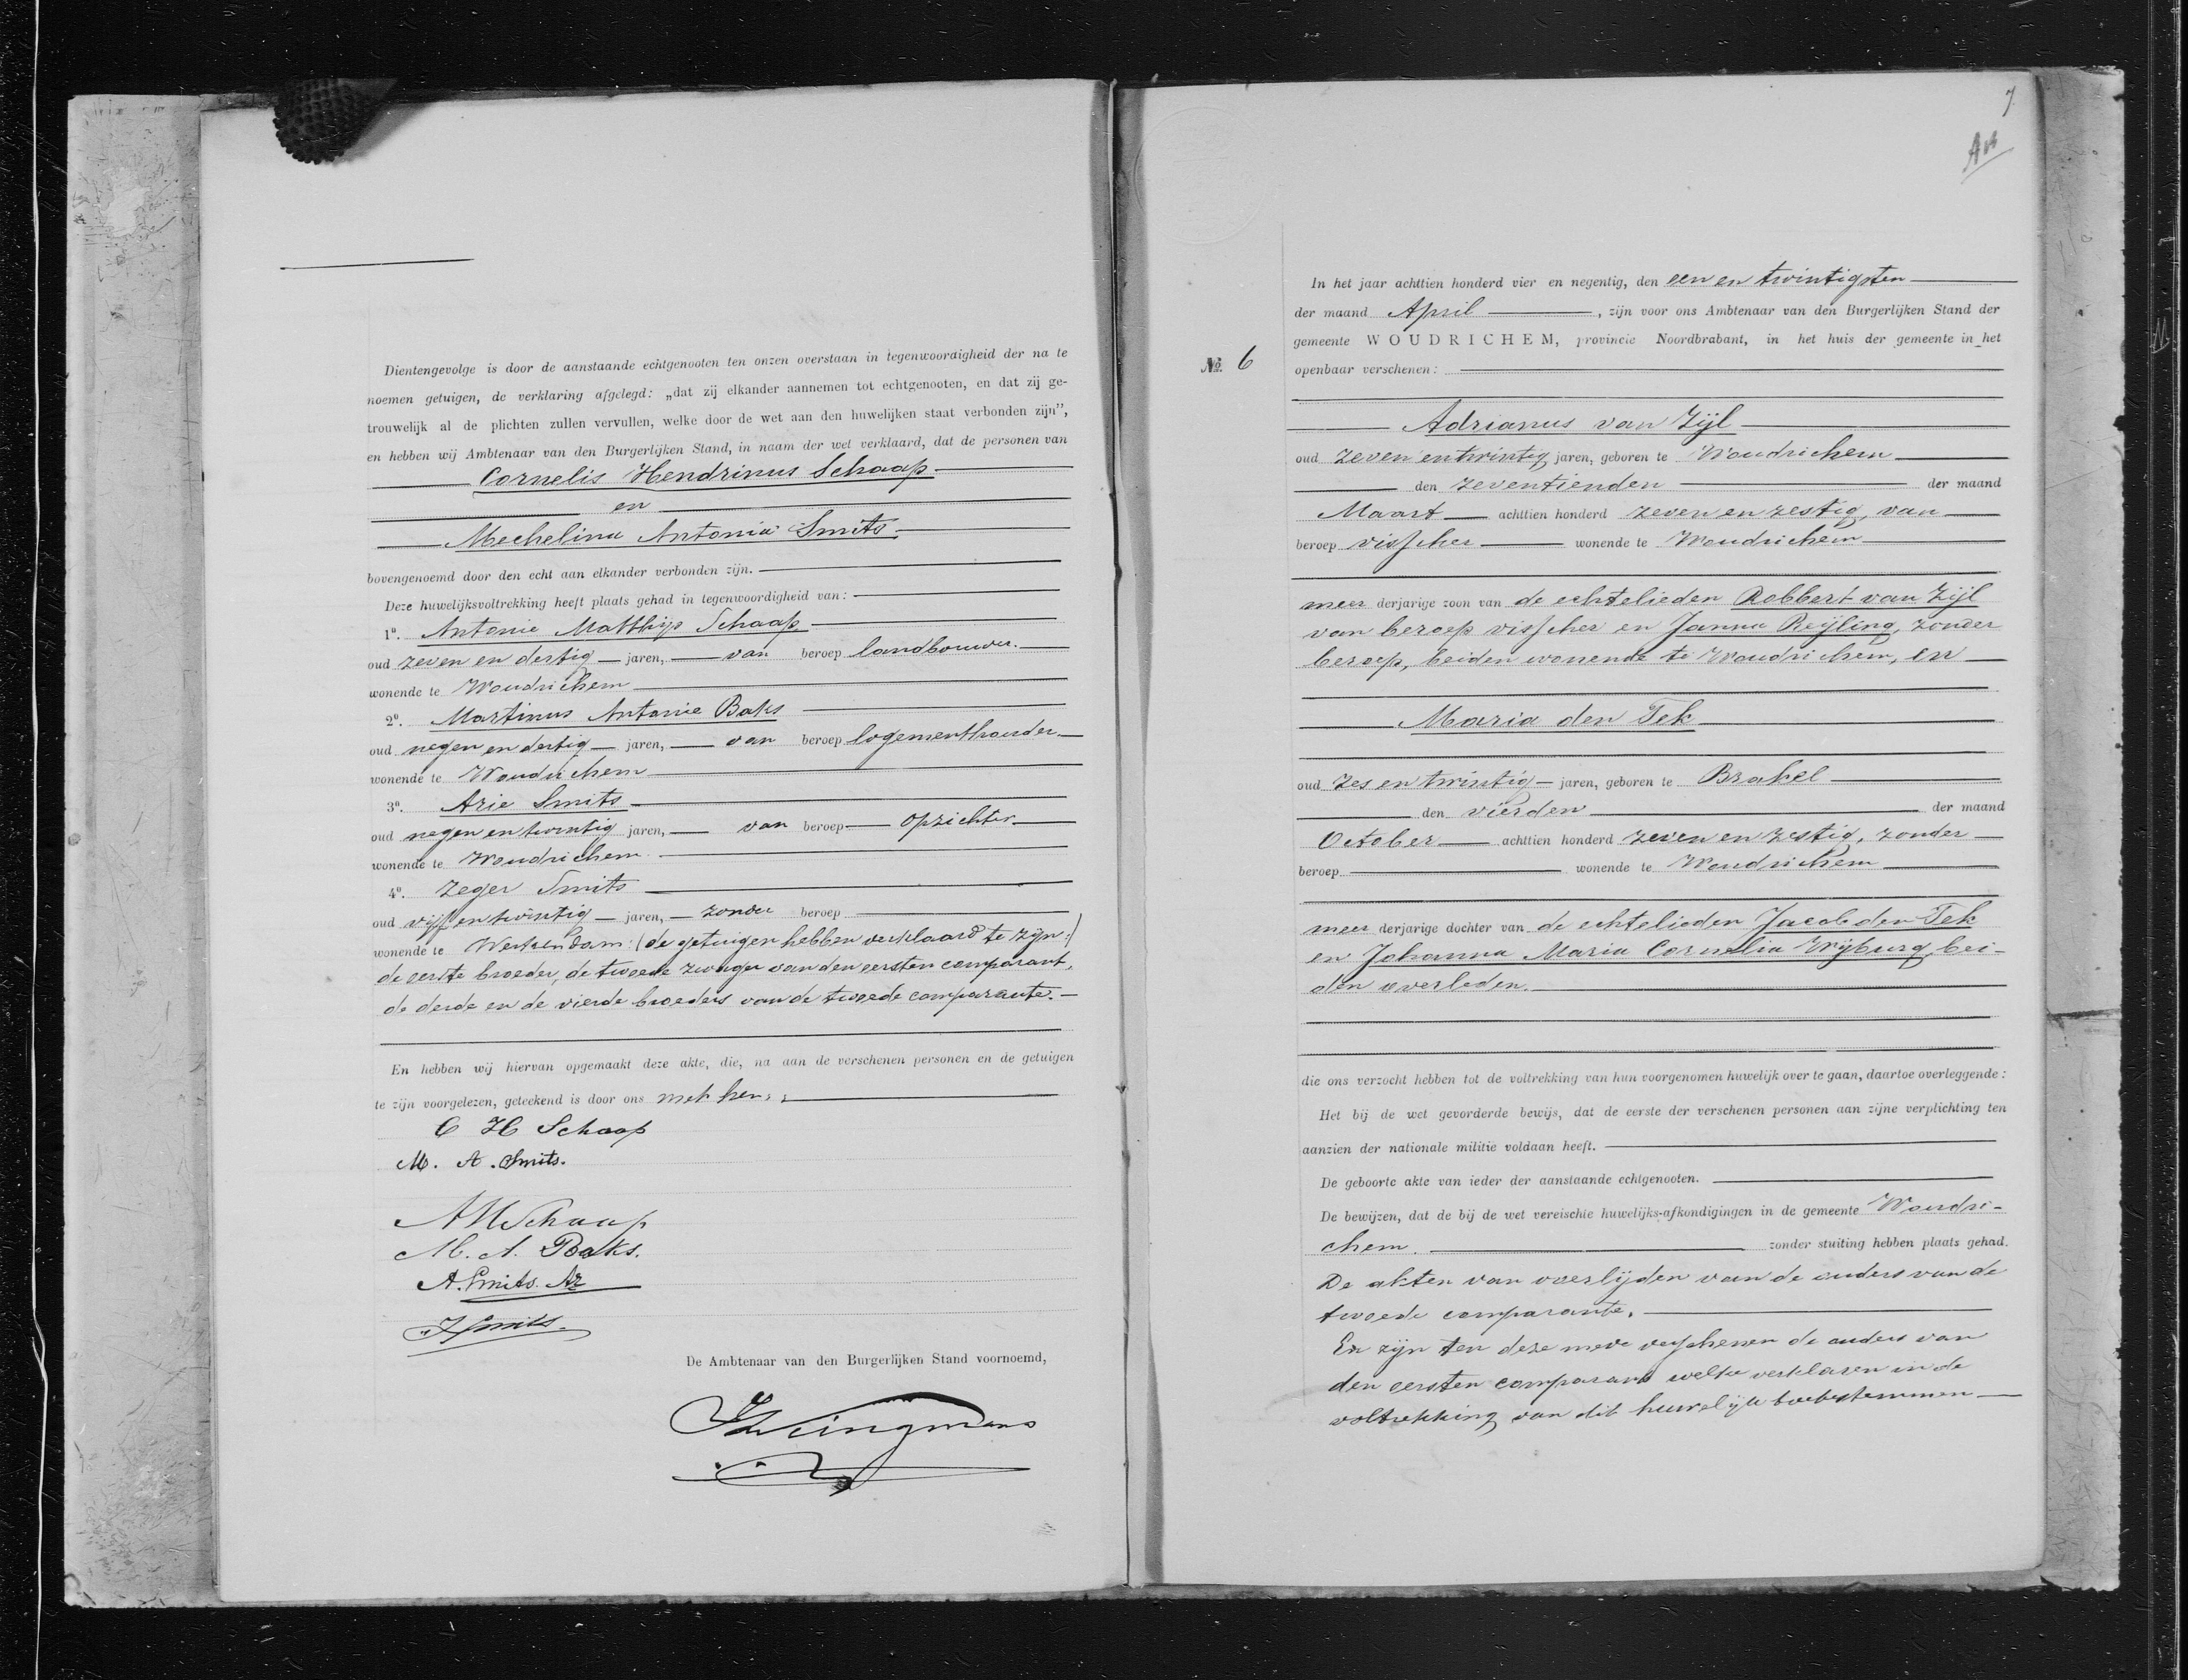 Dientengevolge is door de aanstaande echtgenooten ten onzen overstaan in tegenwoordigheid der na te
noemen getuigen, de verklaring afgelegd: „dat zij elkander aannemen tot echtgenooten, en dat zij ge-
trouwelijk al de plichten zullen vervullen, welke door de wet aan den huwelijken staat verbonden zijn”,
en hebben wij Ambtenaar van den Burgerlijken Stand, in naam der wet verklaard, dat de personen van
Cornelis Hendrinus Schaap
en
Mechelina Antonia Smits.
bovengenoemd door den echt aan elkander verbonden zijn.
Deze huwelijksvoltrekking heeft plaats gehad in tegenwoordigheid van:
1º. Antonie Matthijs Schaap
oud zeven en dertig jaren, van beroep landbouwer.
wonende te Woudrichem
2º. Martinus Antonie Baks
oud negen en dertig jaren, van beroep logementhouder
wonende te Woudrichem
3º. Arie Smits
oud negen en twintig jaren, van beroep opzichter
wonende te Woudrichem
4º. Zeger Smits
oud vijf en twintig jaren, zonder beroep
wonende te Werkendam :(de getuigen hebben verklaard te zijn:)
de eerste broeder, de tweede zwager van den eersten comparant,
de derde en de vierde broeders van de tweede comparante.
En hebben wij hiervan opgemaakt deze akte, die, na aan de verschenen personen en de getuigen
te zijn voorgelezen, geteekend is door ons met hen.
C H Schaap
M. A. Smits.
AMSchaap
M. A. Baks.
A. Smits. Az
Smits.
De Ambtenaar van den Burgerlijken Stand voornoemd,
7
In het jaar achttien honderd vier en negentig, den een en twintigsten
der maand April, zijn voor ons Ambtenaar van den Burgerlijken Stand der
gemeente WOUDRICHEM, provincie Noordbrabant, in het huis der gemeente in het
No. 6 openbaar verschenen:
Adrianus van Zijl
oud zeven en twintig jaren, geboren te Woudrichem
den zeventienden der maand
Maart achttien honderd zeven en zestig, van
beroep visscher wonende te Woudrichem
meer derjarige zoon van de echtelieden Robbert van Zijl
van beroep visscher en Janna Reijling, zonder
beroep, beiden wonende te Woudrichem, en
Maria den Tek
oud zes en twintig jaren, geboren te Brakel
den vierden der maand
October achttien honderd zeven en zestig, zonder
beroep wonende te Woudrichem
meer derjarige dochter van de echtelieden Jacob den Tek
en Johanna Maria Cornelia Wijburg, bei-
den overleden.
die ons verzocht hebben tot de voltrekking van hun voorgenomen huwelijk over te gaan, daartoe overleggende:
Het bij de wet gevorderde bewijs, dat de eerste der verschenen personen aan zijne verplichting ten
aanzien der nationale militie voldaan heeft.
De geboorte akte van ieder der aanstaande echtgenooten.
De bewijzen, dat de bij de wet vereischte huwelijks-afkondigingen in de gemeente Woudri-
chem. zonder stuiting hebben plaats gehad.
De akten van overlijden van de ouders van de
tweede comparante.
En zijn ten deze mede verschenen de ouders van
den eersten comparant welke verklaren in de
voltrekking van dit huwelijk toetestemmen